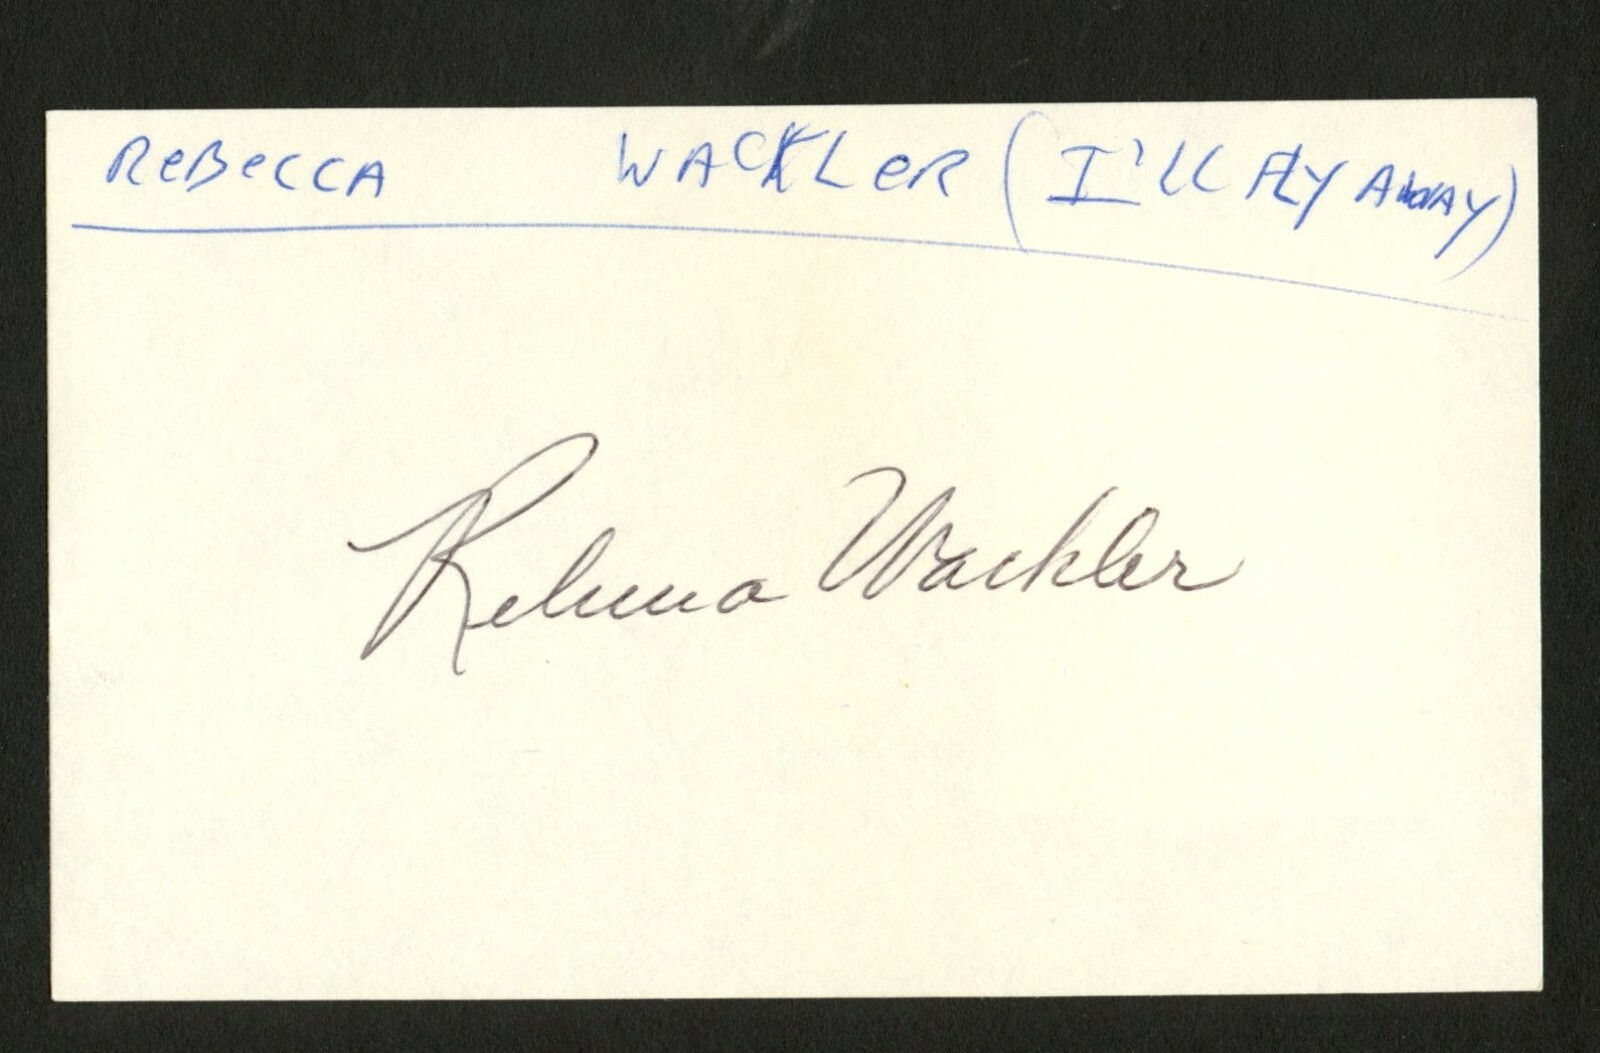 ReBeCCA WACKLeR (I'LL FLY AWAY)
Rebecca Wackler